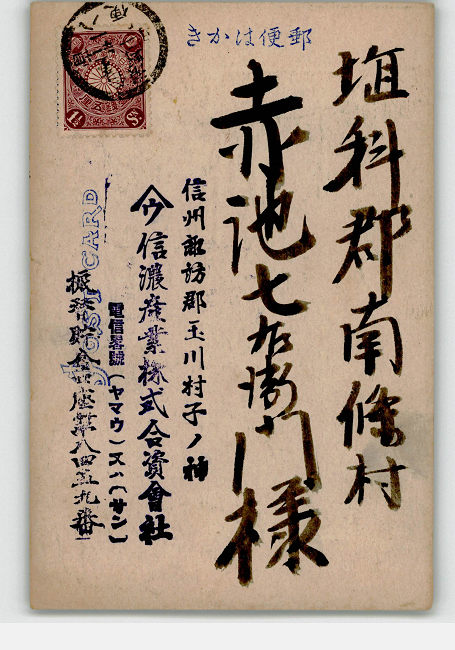 郵便はかき
埴科郡南條村
赤池七右衛門様
信州諏訪郡玉川村子ノ神
ウ信濃産業株式合資會社
電信畧號(ヤマウ)又ハ(サン)
振替貯金口座第八四五九番
POST CARD
1½ Sn